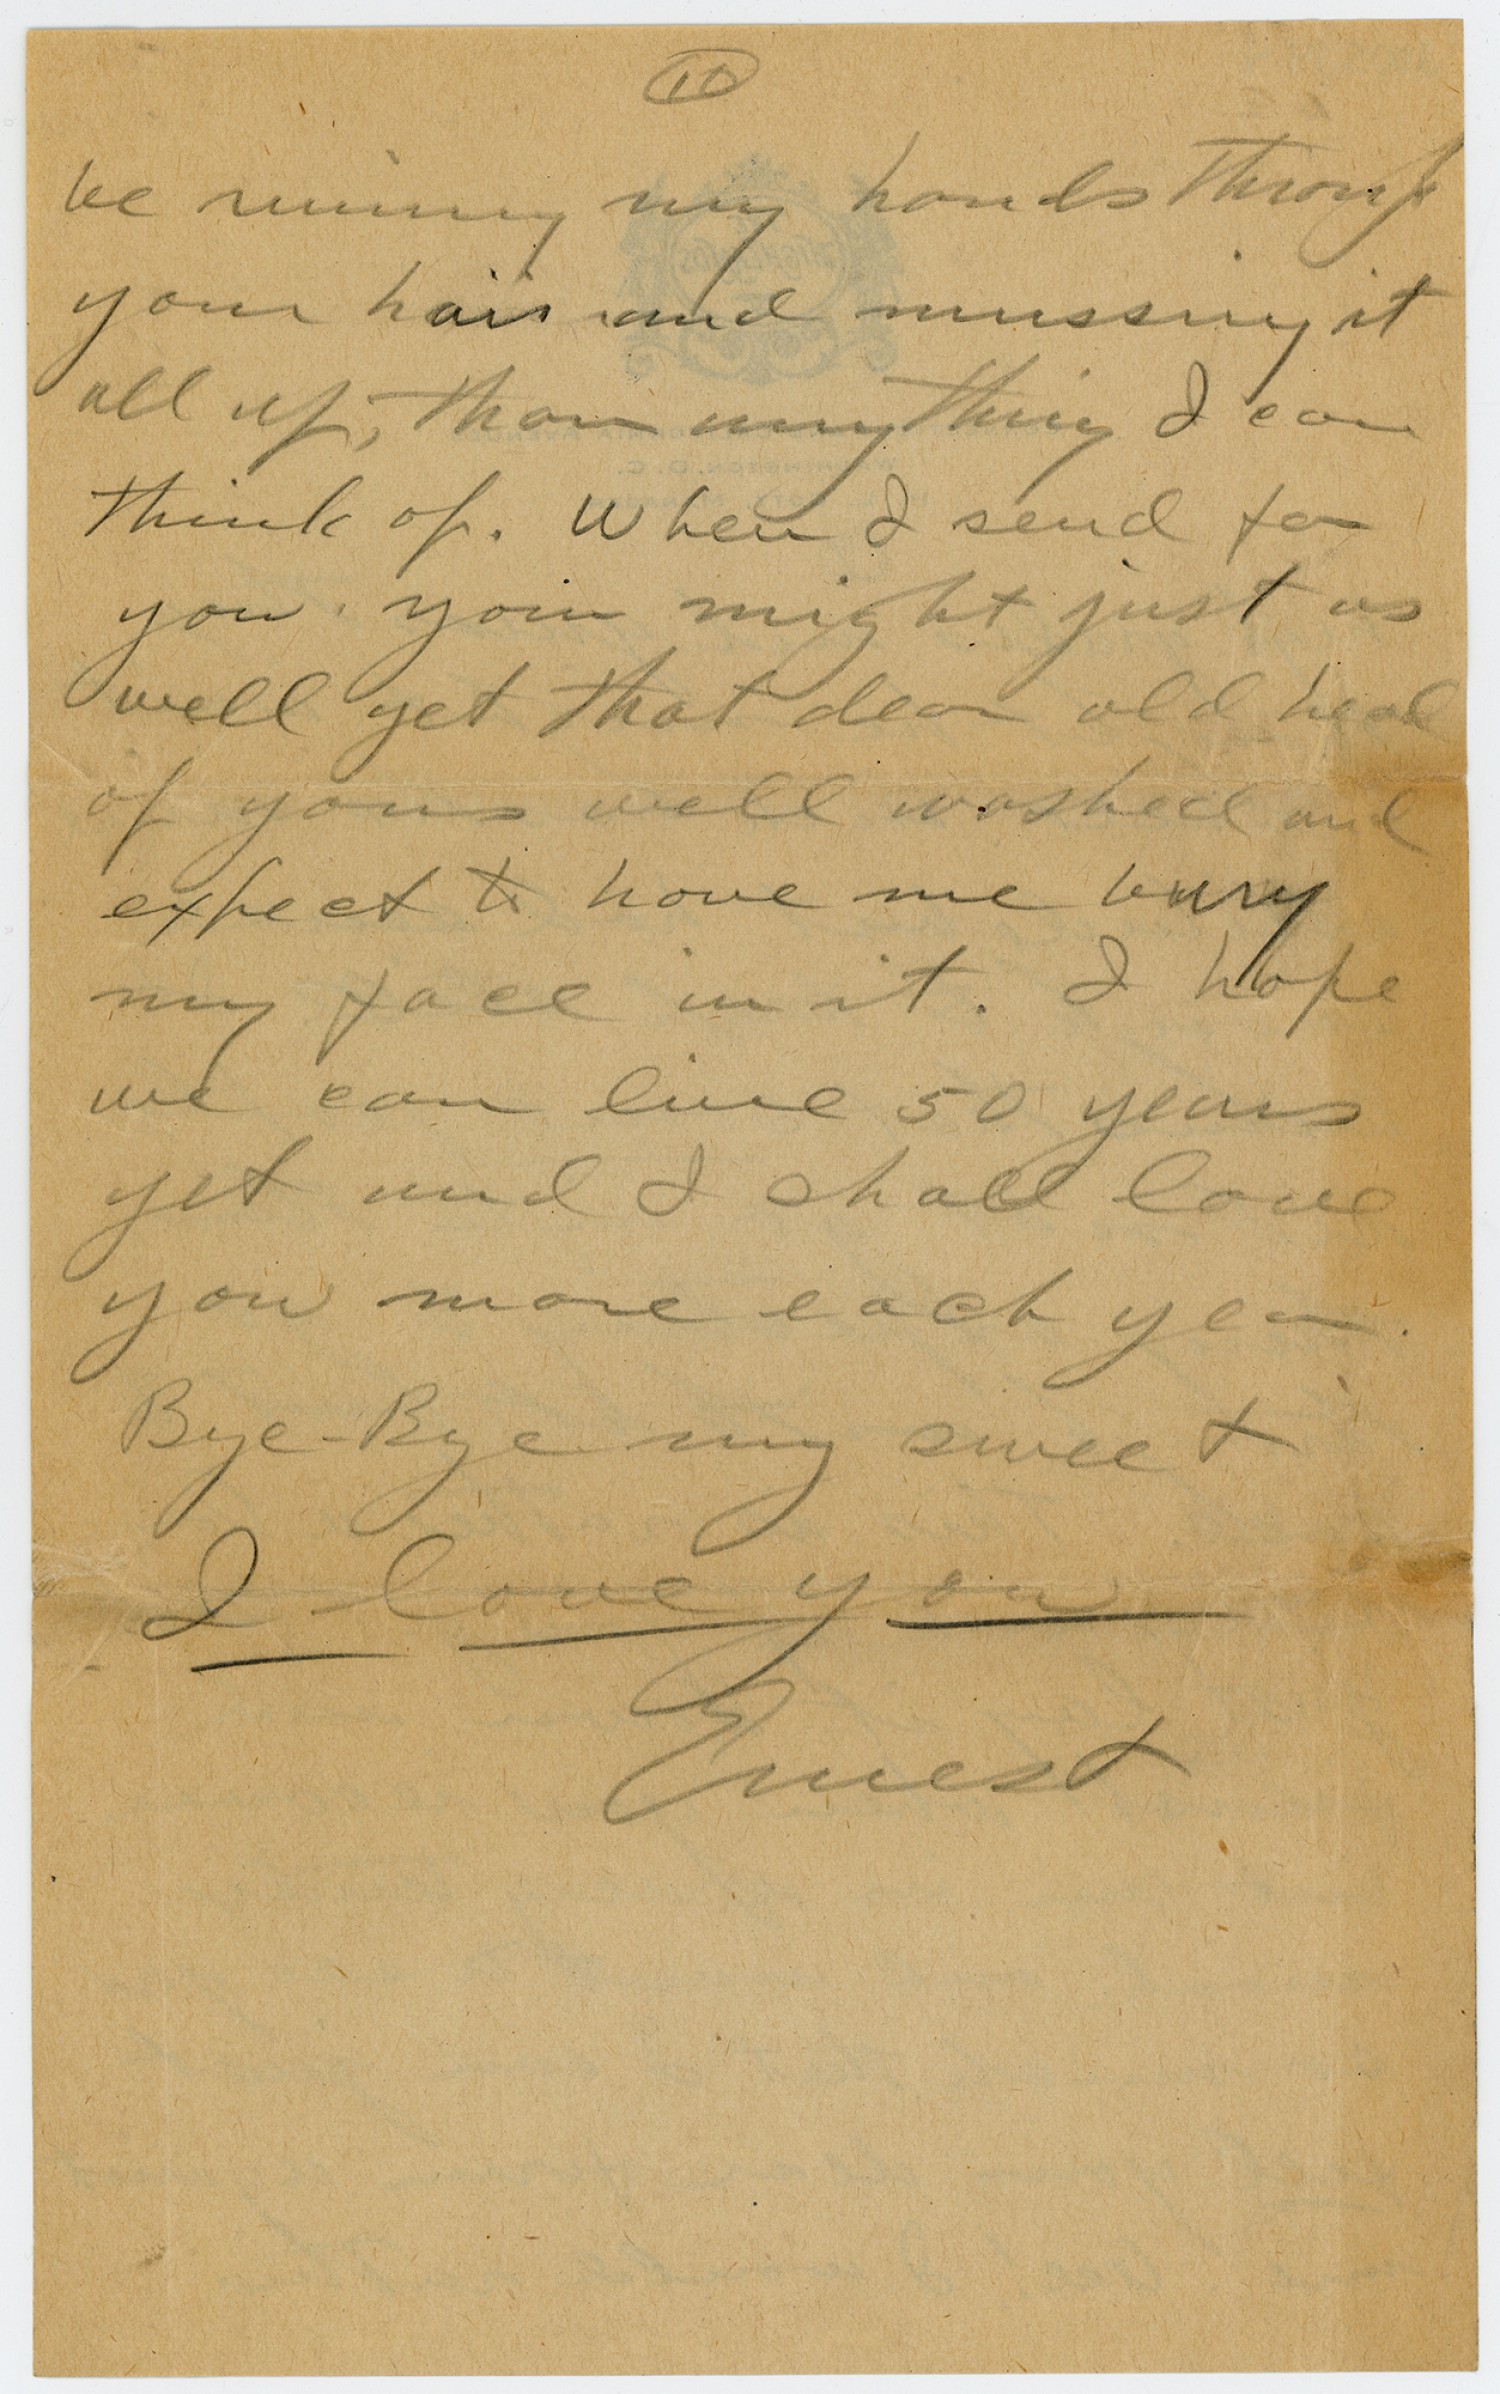 10
be runing my hands through
your hair and mussing it
all up, than anything I can
think of. When I send for
you. your might just as
well get that dear old head
of yours well washed and
expect to have me bury
my face in it. I hope
we can live 50 years
yet and I shall love
you more each year.
Bye-Bye my sweet
I love you
Ernest